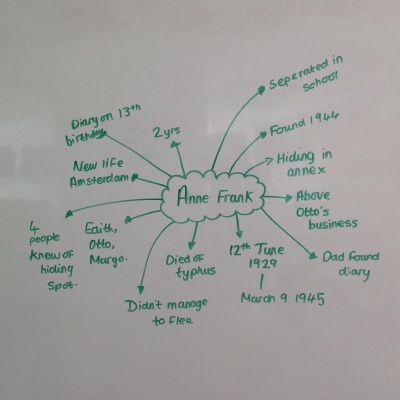 Seperated in
school
Diary on 13th
birthday
2yrs
Found 1944
New life
Amsterdam
Hiding in
annex
Anne Frank
Above
Otto's
business
4
people
knew of
hiding
spot.
Edith,
Otto,
Margo.
Died of
typhus
12th June
1929
March 9 1945
Dad found
diary
Didn't manage
to flee